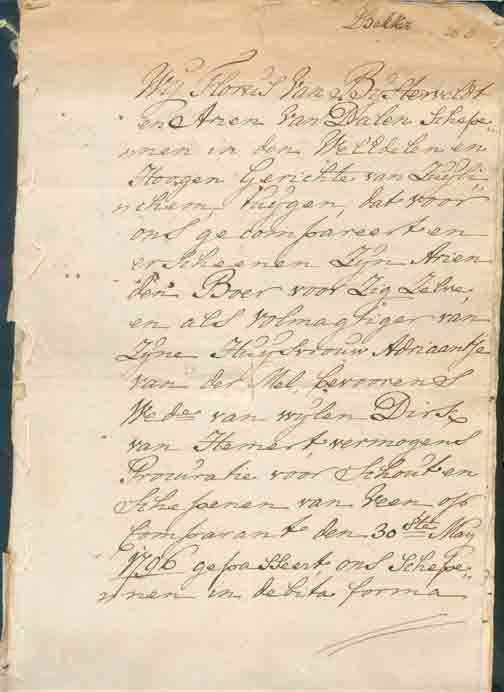 Bakker
Wij Floris Van Bijsterveldt
en Arien Van Dalen Schepe„
„nen in den WelEdelen en
Hoogen Gerichte van Zuijli„
„chem, tuijgen, dat voor
ons gecompareert en
erscheenen Zijn Arien
den Boer voor Zig Zelve,
en als volmagtiger van
Zijne Huijsvrouw Adriaantje
van der Mel, bevoorens
Wede van wijlen Dirk
van Hemert vermogens
Procuratie voor Schout en
Schepenen van Veen op
Comparant den 30ste Maij
1796 gepasseert, ons Schepe„
„nen in debita forma